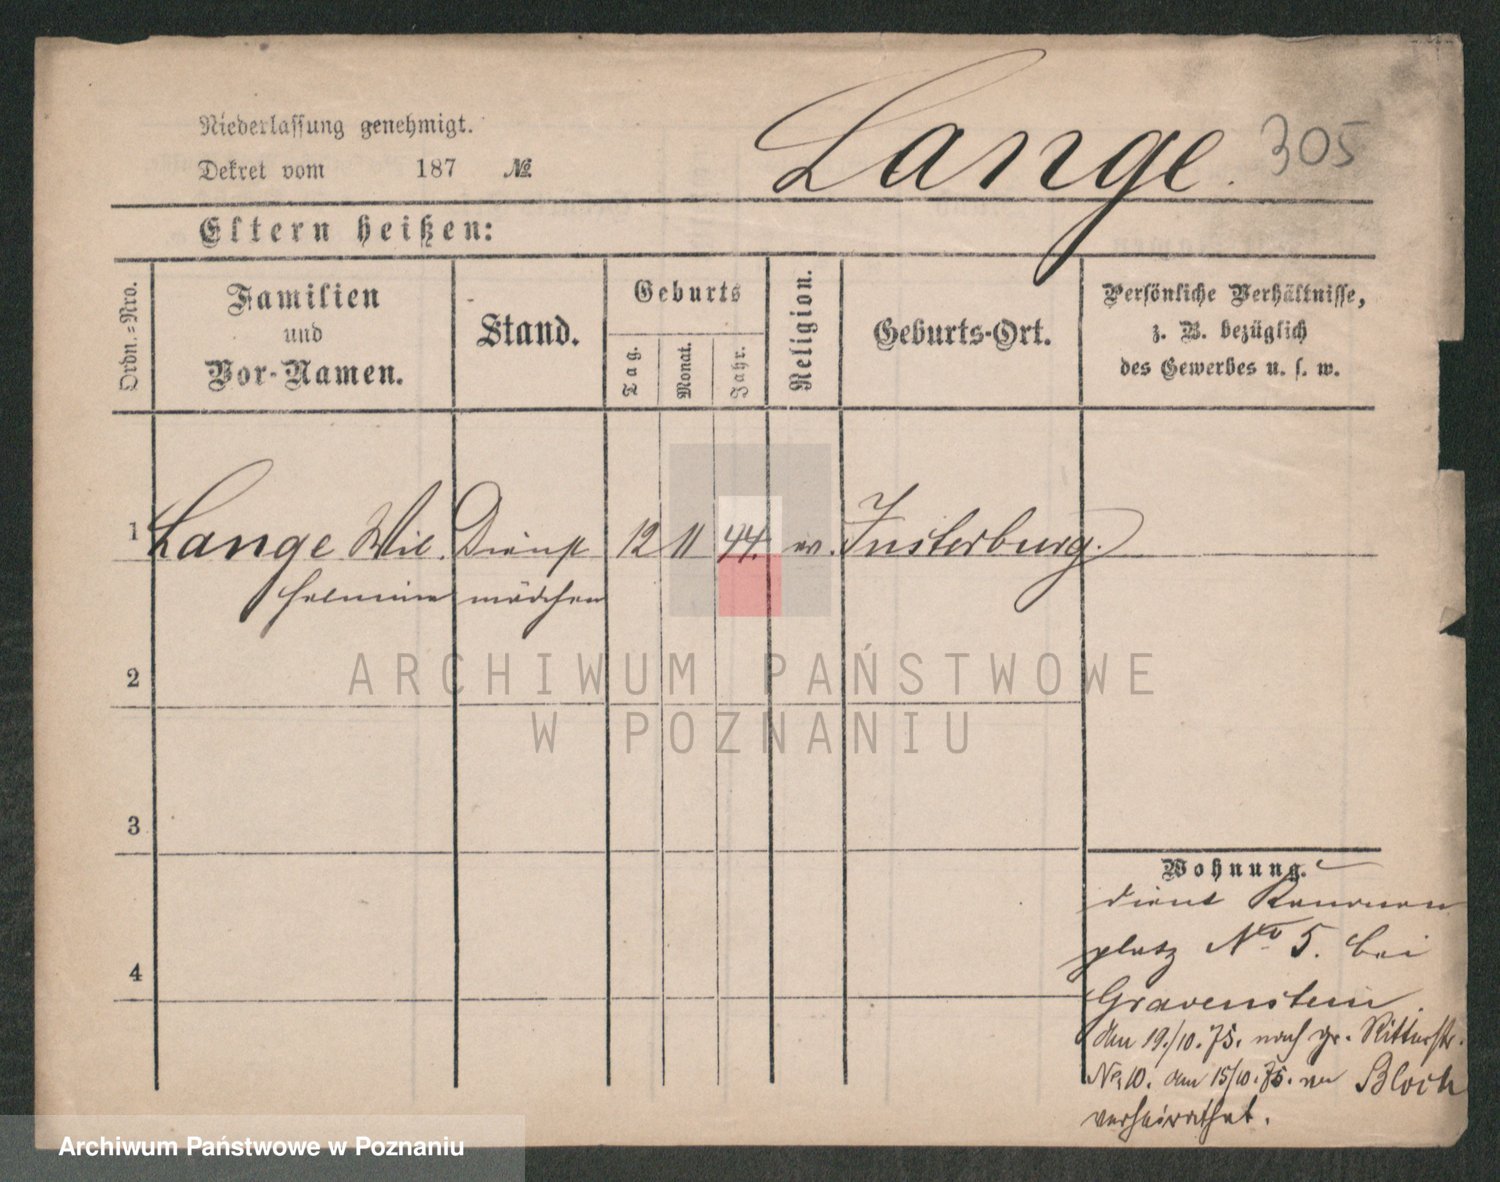 Niederlassung genehmigt.
Dekret vom 187 №
Lange. 305
Eltern heißen:
Ordn.=Nro.
Familien
und
Vor-Namen.
Stand.
Geburts
Tag.
Monat.
Jahr.
Religion.
Geburts-Ort.
Persönliche Verhältnisse,
z. B. bezüglich
des Gewerbes u. s. w.
1 Lange Wil. Dienst 12 11 44. ev. Insterburg.
helmine mädchen
2
3
4
ARCHIWUM PAŃSTWOWE
W POZNANIU
Wohnung.
dient Kanonen
platz No 5. bei
Gravenstein.
den 19./10. 75. nach gr. Ritterstr.
No 10. den 15/10. 75. an Bloch
verheirathet.
Archiwum Państwowe w Poznaniu